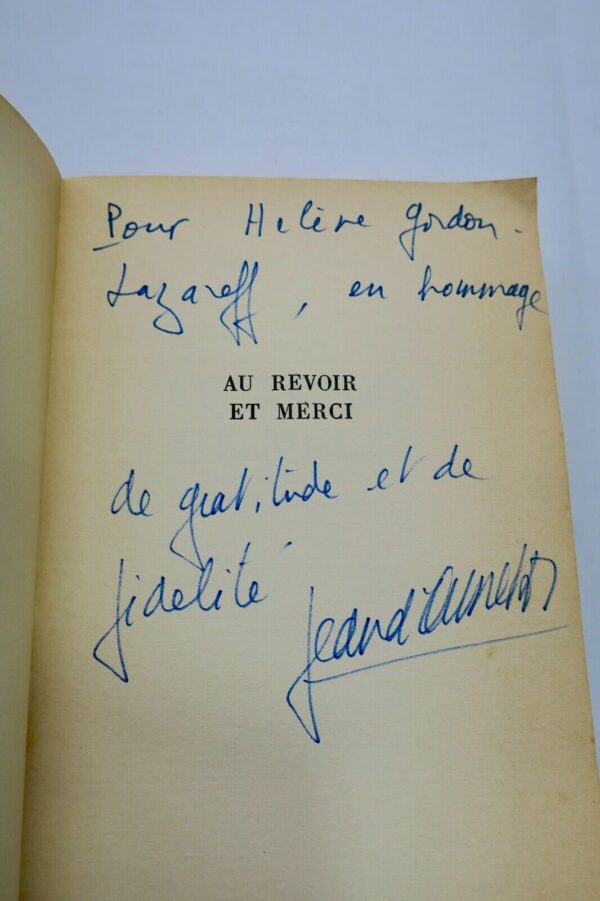 Pour Helène Gordon-
Lazareff, en hommage
AU REVOIR
ET MERCI
de gratitude et de
fidelité
Jean d'Ormesson